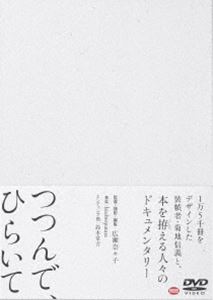 1万5千冊を
デザインした
装幀者・菊地信義と、
本を拵える人々の
ドキュメンタリー
監督・撮影・編集 広瀬奈々子
音楽
エンディング曲 鈴木常吉
つつんで、
ひらいて
DVD
VIDEO